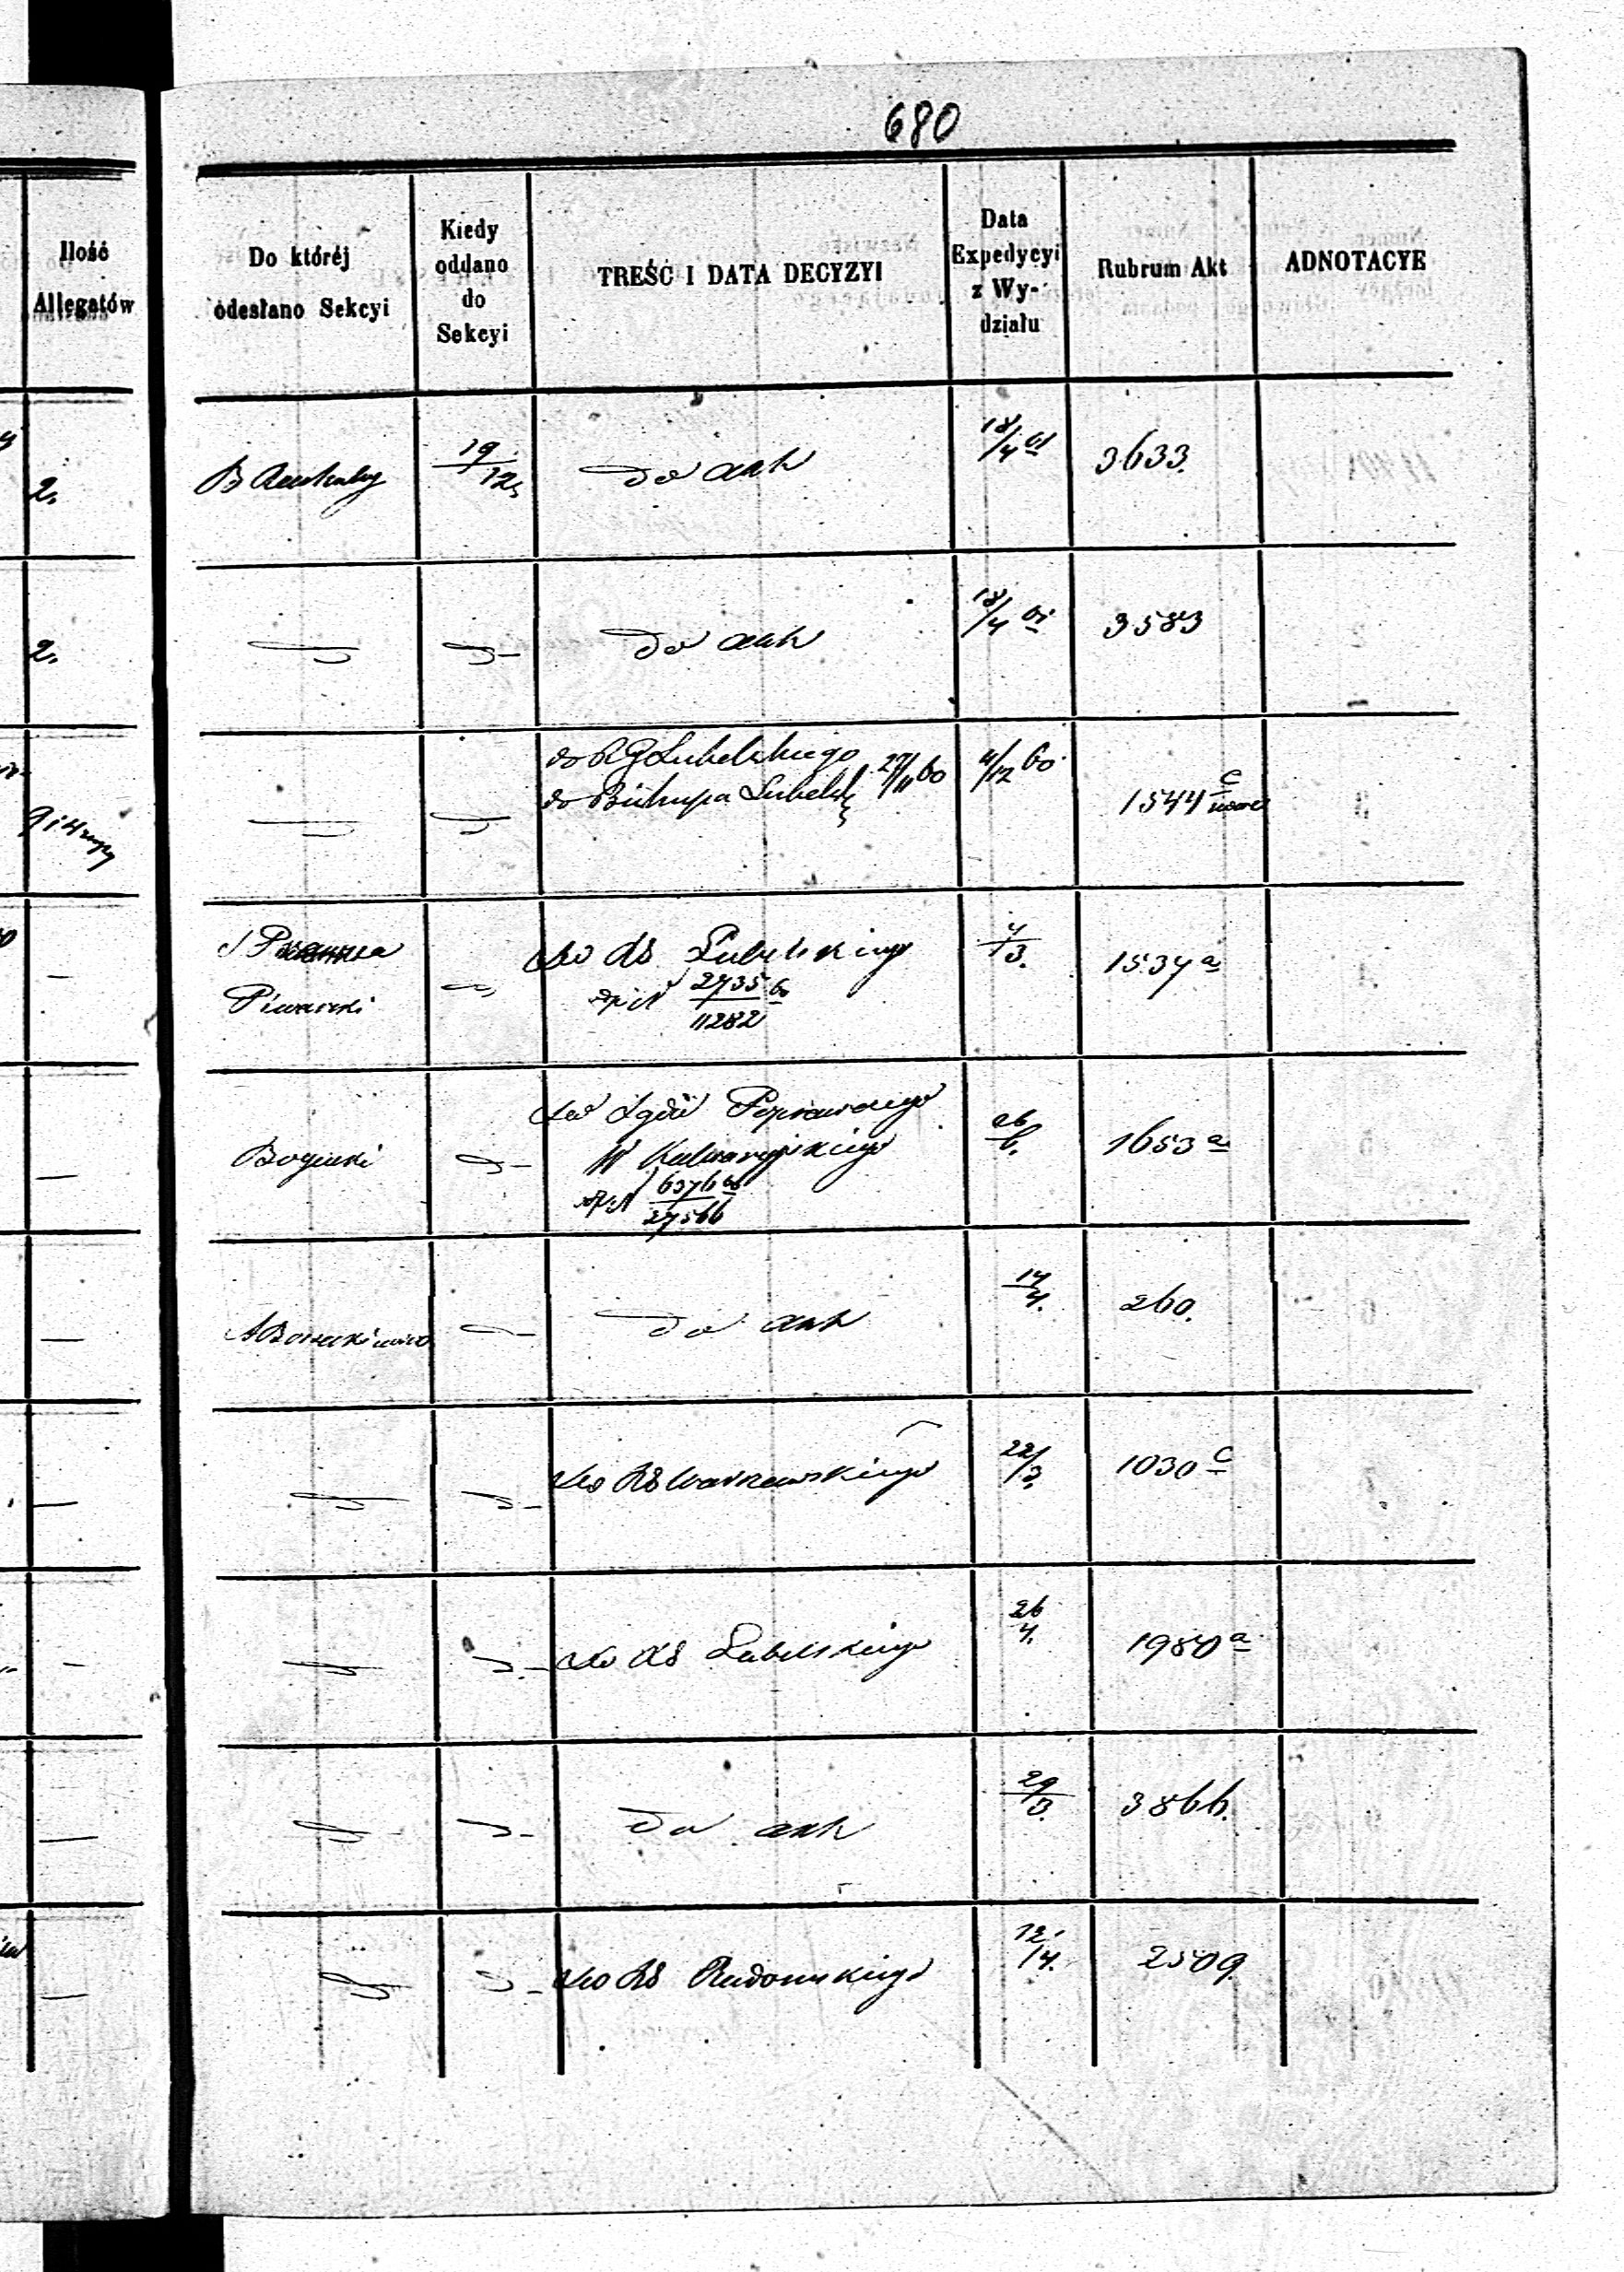 680
Ilość
Allegatów
Do któréj
odesłano Sekcyi
Kiedy
oddano
do
Sekcyi
TREŚĆ I DATA DECYZYI
Data
Expedycyi
z Wy-
działu
Rubrum Akt
ADNOTACYE
2.
B
19/12
do akt
18/4 61
3633.
2.
do akt
18/4 61
3583
do RG Lubelskiego
do Biskupa Lubelsk
27/11 60
4/12 60
1544 c
—
Piwarski
do Lubelskiego
2735
11282
4/3.
1534 a
—
Bogucki
do Sądu Poprawczego
W Kalwaryjskiego
6376
27566
26/6.
1653 a
—
do akt
14/4.
260.
—
do Warszawskiego
22/3
1030 c
—
do Lubelskiego
26/4.
1980 a
—
do akt
29/3.
3866.
—
do Radomskiego
12/4.
2509.